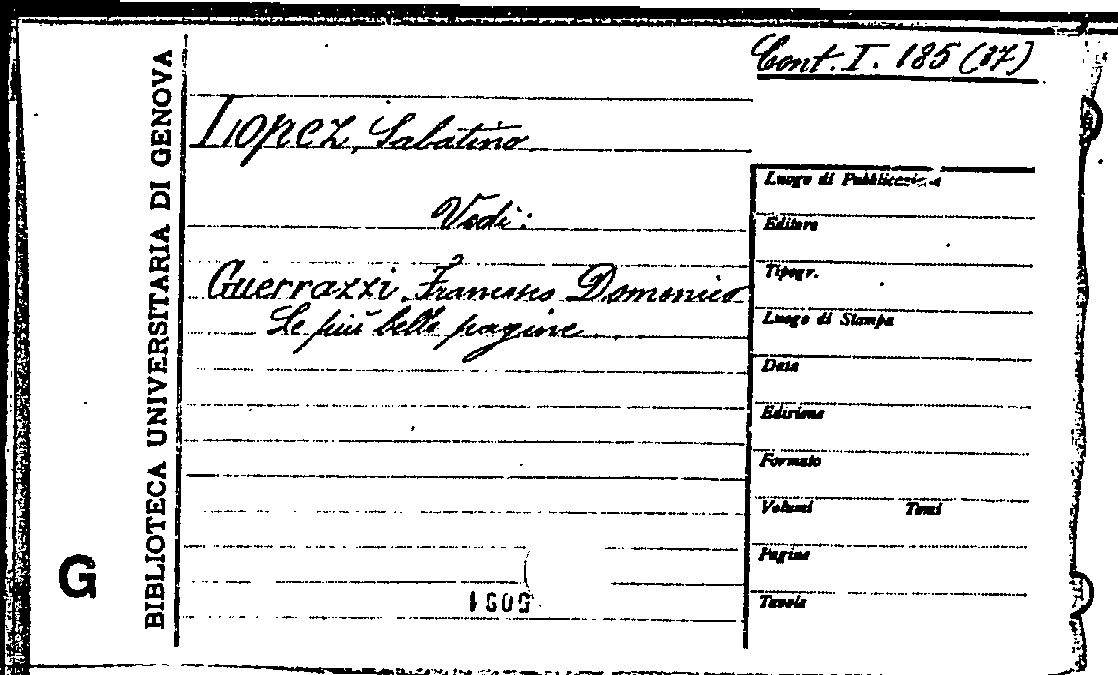 Cont. I. 185 (17)
Lopez, Sabatino
Vedi:
Guerrazzi, Francesco Domenico
Le più belle pagine
BIBLIOTECA UNIVERSITARIA DI GENOVA
G
Luogo di Pubblicazione
Editore
Tipogr.
Luogo di Stampa
Data
Edizione
Formato
Volumi Tomi
Pagine
Tavole